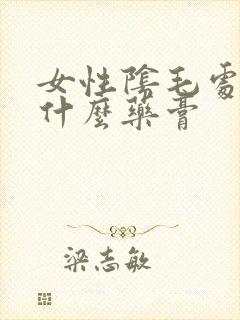 女性陰毛處
什麼藥膏
梁志敏